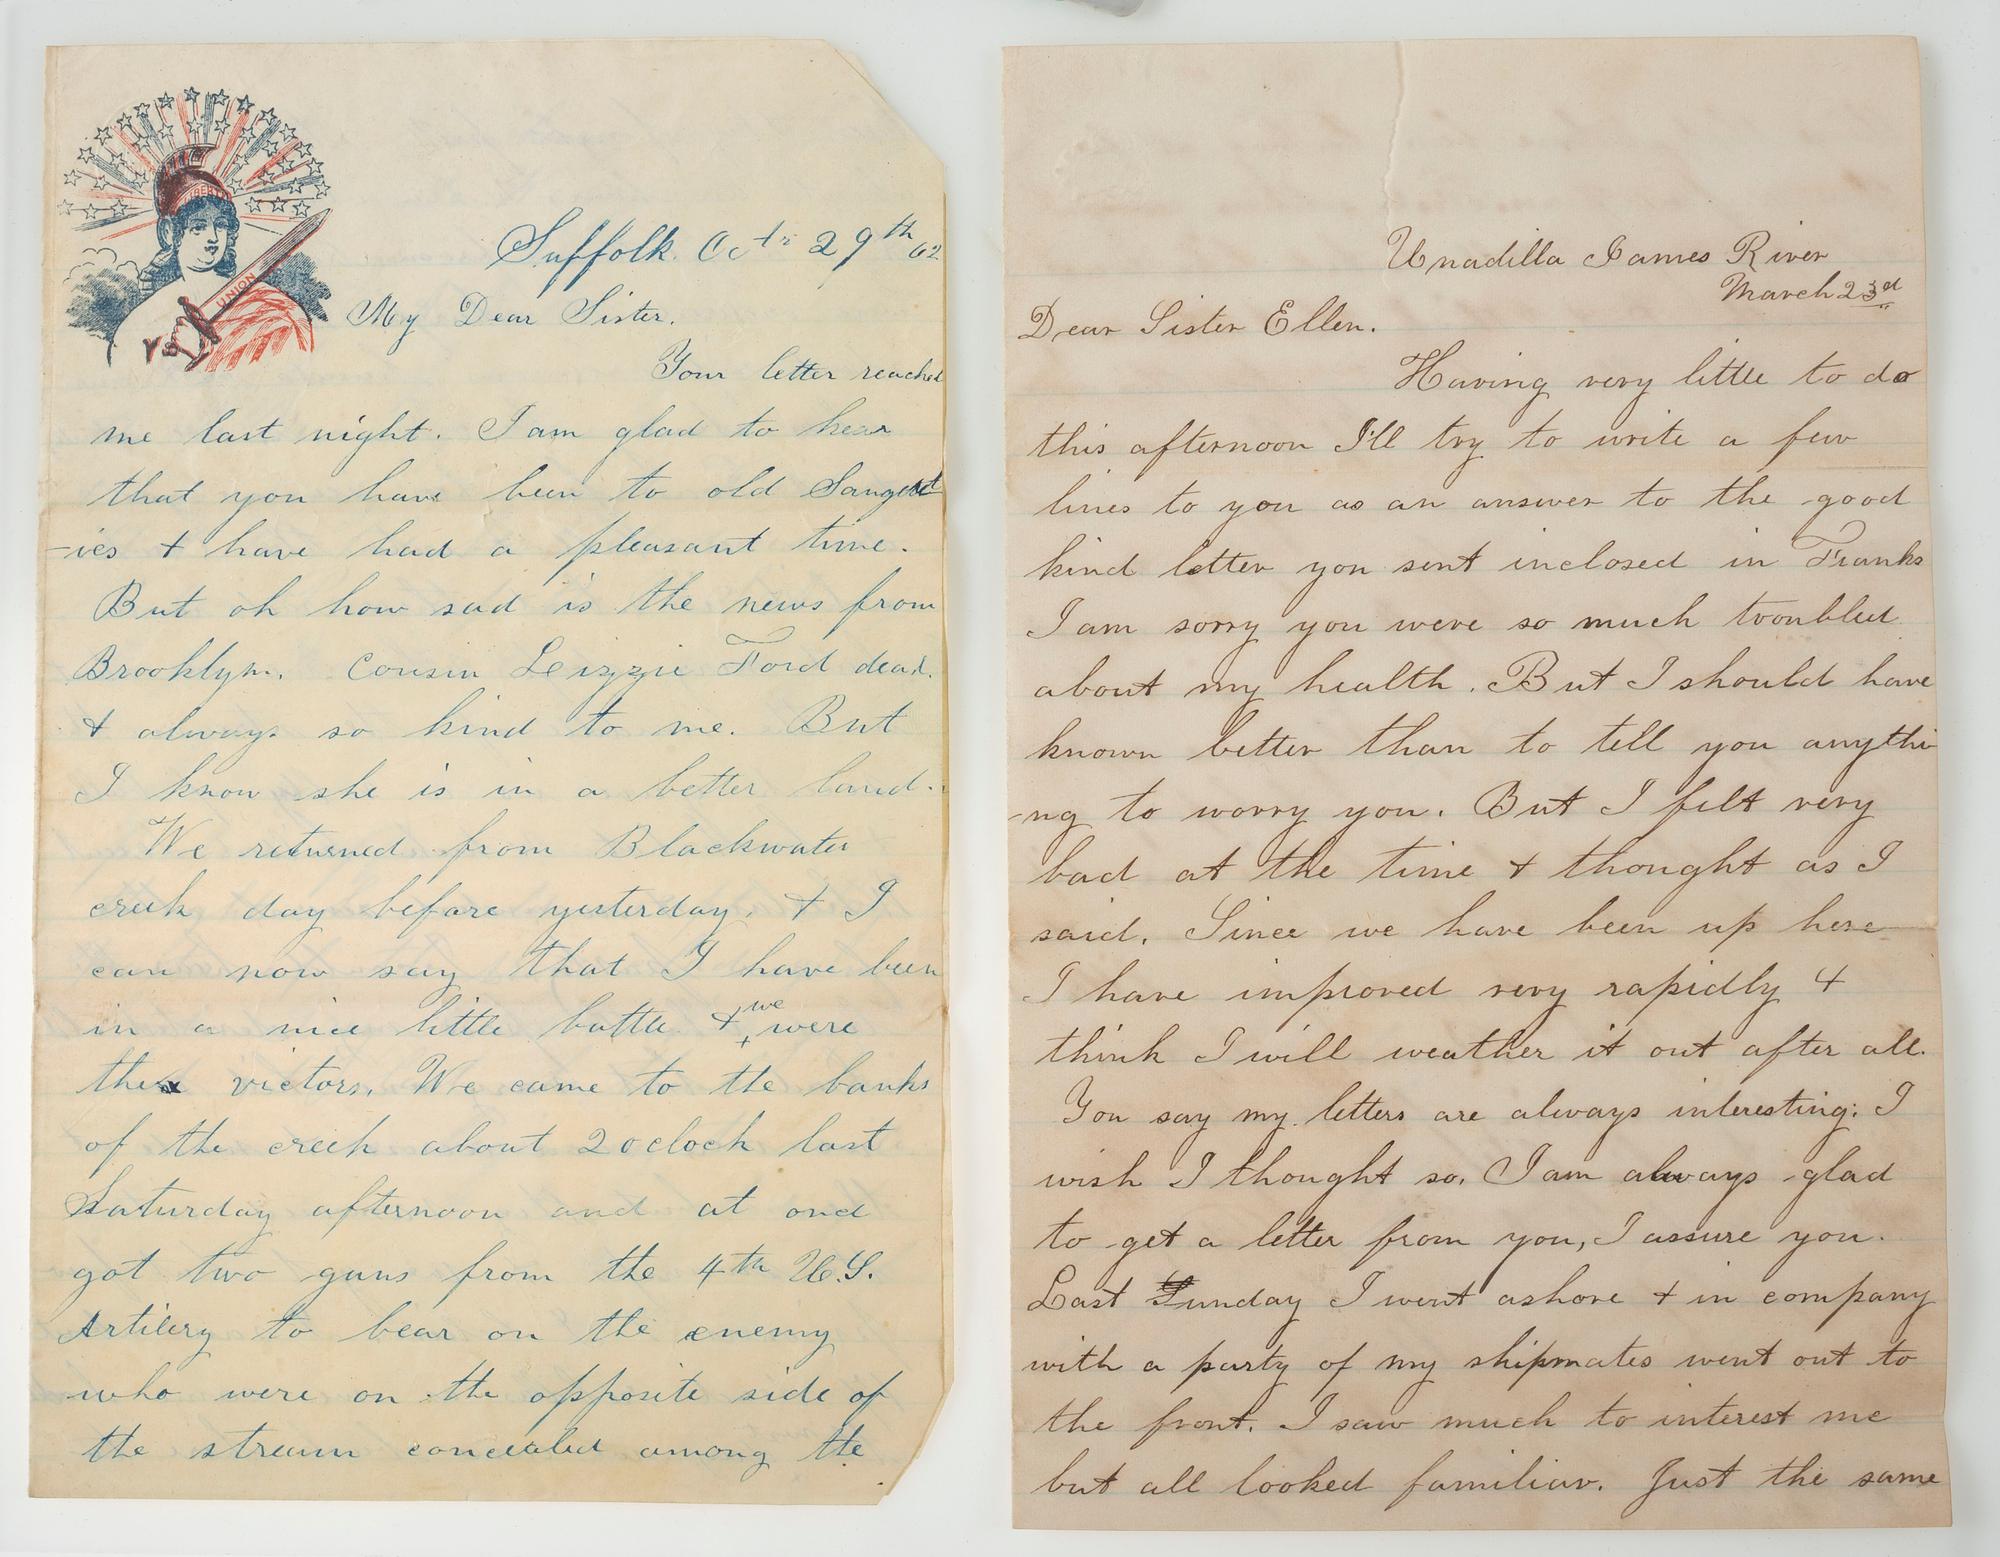 LIBERTY
UNION
Suffolk. Oct. 29th 62
My Dear Sister.
Your letter reached
me last night. I am glad to hear
that you have been to old Saugert
-ies & have had a pleasant time.
But oh how sad is the news from
Brooklyn. Cousin Leizzie Ford dead.
& always so kind to me. But
I know she is in a better land.
We returned from Blackwater
creek day before yesterday. & I
can now say that I have been
in a nice little battle & we were
the victors. We came to the banks
of the creek about 2 oclock last
Saturday afternoon and at once
got two guns from the 4th U.S.
Artilery to bear on the enemy
who were on the opposite side of
the stream concealed among the
Unadilla James River
March 23d
Dear Sister Ellen.
Having very little to do
this afternoon I'll try to write a few
lines to you as an answer to the good
kind letter you sent inclosed in Franks
I am sorry you were so much troubled
about my health. But I should have
known better than to tell you anythi
-ng to worry you. But I felt very
bad at the time & thought as I
said. Since we have been up here
I have improved very rapidly &
think I will weather it out after all.
You say my letters are always interesting. I
wish I thought so. I am always glad
to get a letter from you, I assure you.
Last Sunday I went ashore & in company
with a party of my shipmates went out to
the front. I saw much to interest me
but all looked familiar. Just the same